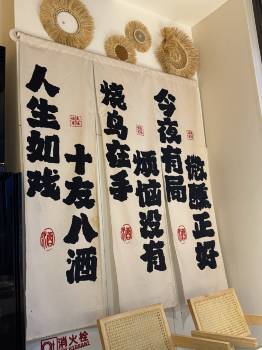 人生如戏
十友八酒
烧鸟在手
烦恼没有
今夜有局
微醺正好
酒
酒
酒
消火栓